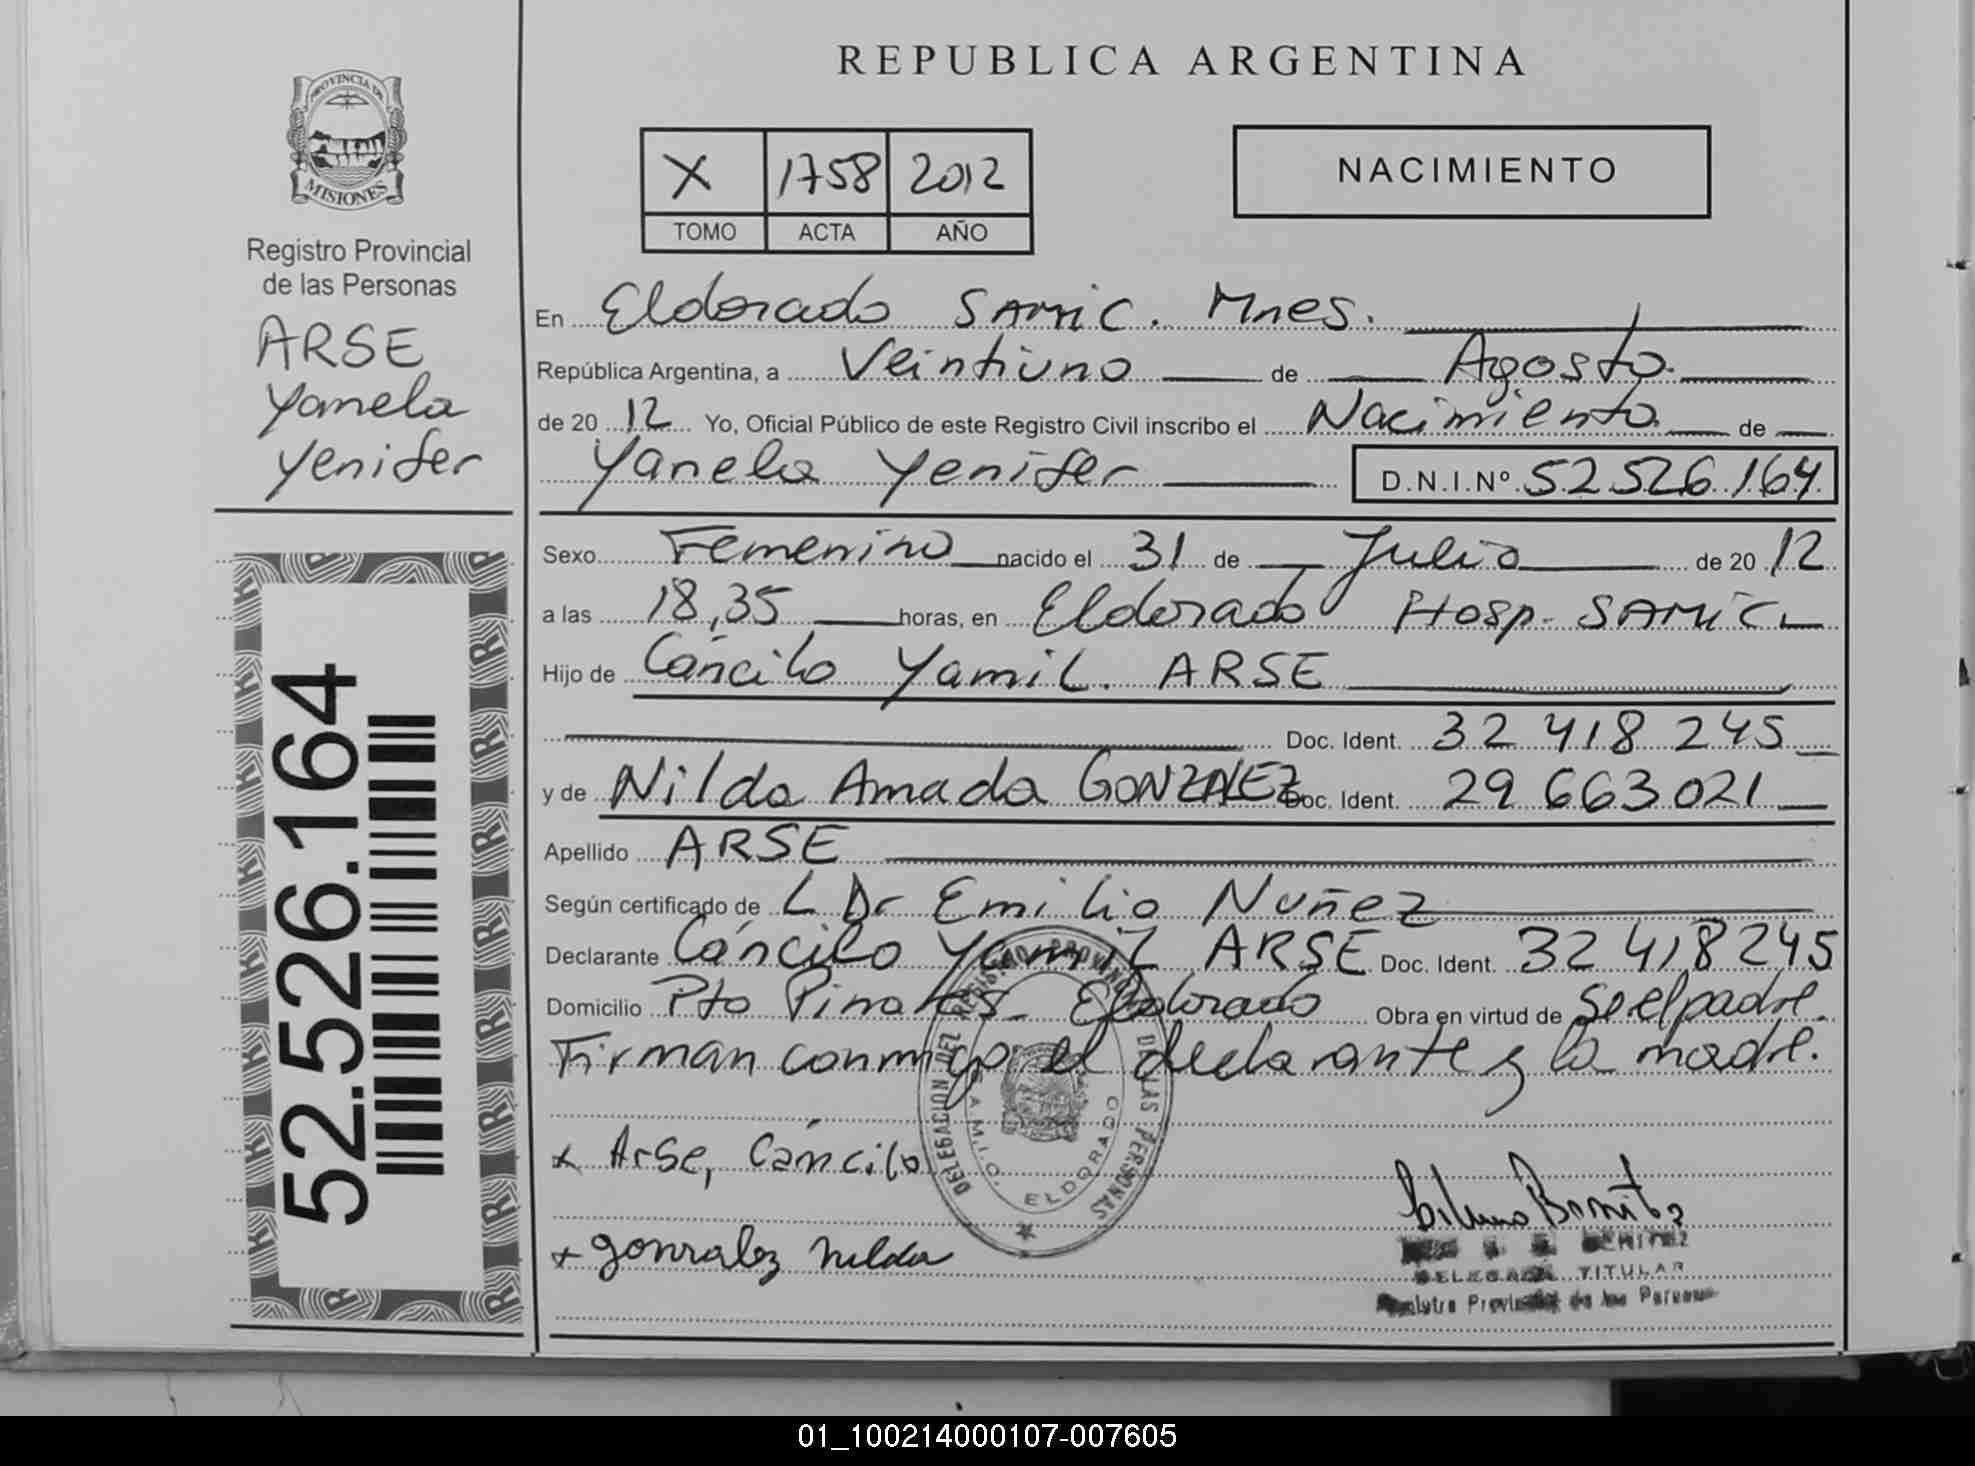 REPUBLICA ARGENTINA
PROVINCIA DE
MISIONES
Registro Provincial
de las Personas
ARSE
Yanela
Yenifer
52.526.164
X 1758 2012
TOMO ACTA AÑO
NACIMIENTO
En Eldorado SAMIC. Mnes.
República Argentina, a Veintiuno de Agosto.
de 20 12 Yo, Oficial Público de este Registro Civil inscribo el Nacimiento de
Yanela Yenifer D.N.I.Nº 52.526.164
Sexo Femenino nacido el 31 de Julio de 20 12
a las 18,35 horas, en Eldorado Hosp. SAMIC
Hijo de Cáncilo Yamil. ARSE
Doc. Ident. 32 418 245
y de Nilda Amada GONZALEZ Doc. Ident. 29 663 021
Apellido ARSE
Según certificado de L Dr Emilio Nuñez
Declarante Cáncilo Yamil ARSE Doc. Ident. 32 418 245
Domicilio Pto Pinares - Eldorado Obra en virtud de se el padre.
Firman conmigo el declarante y la madre.
DELEGACION DEL REGISTRO PROVINCIAL DE LAS PERSONAS
S.A.M.I.C. ELDORADO
x Arse, Cáncilo
x gonzalez nilda
BENITEZ
DELEGADA TITULAR
Registro Provincial de las Personas
01_100214000107-007605